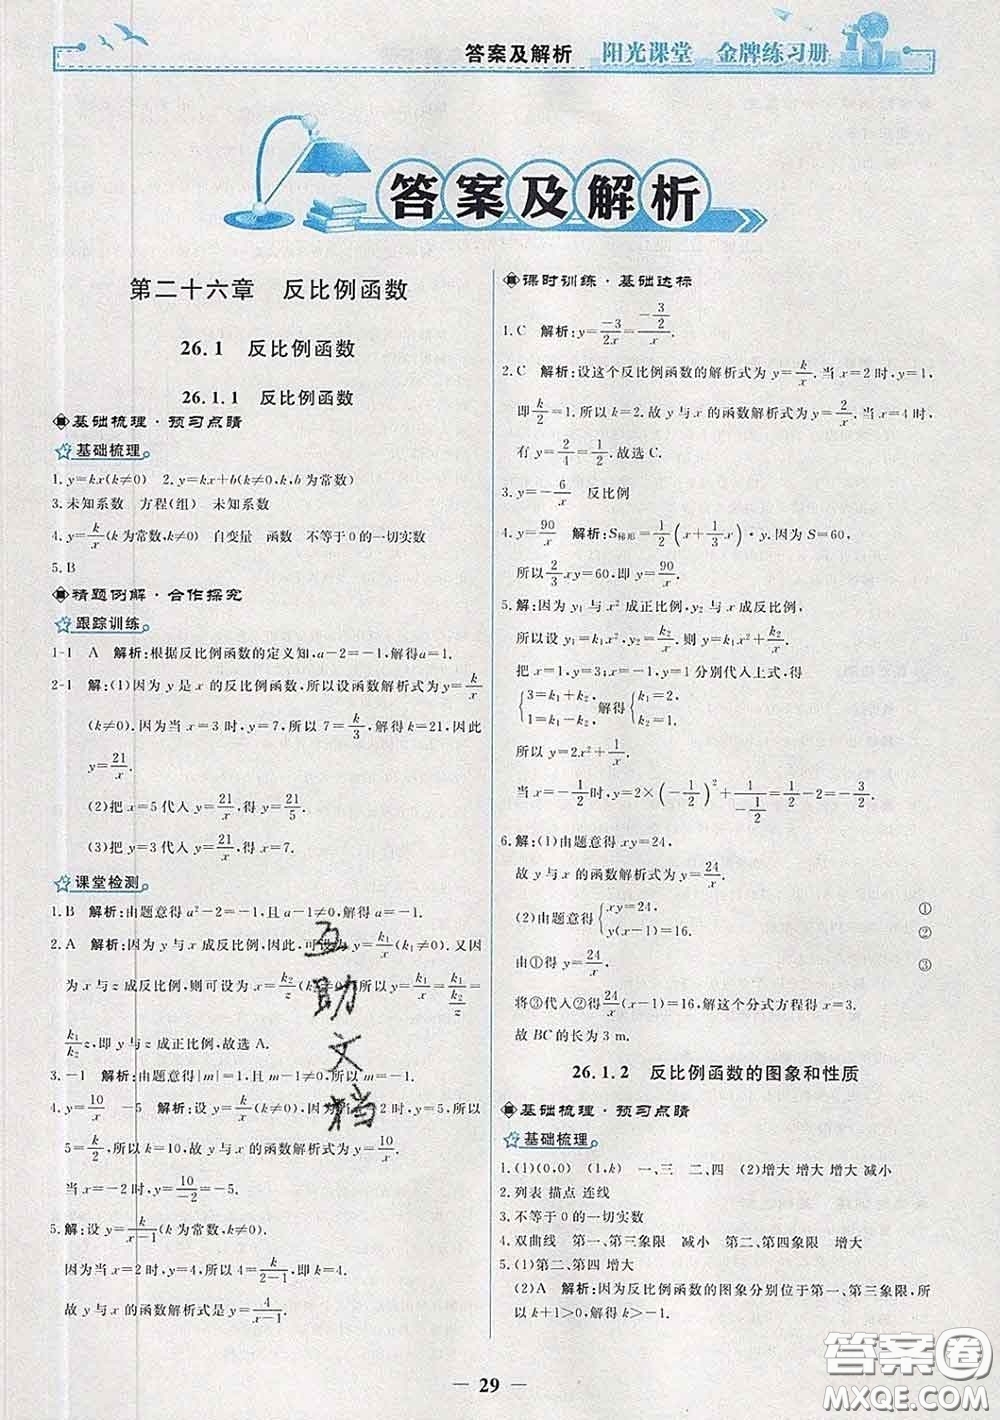 答案及解析 阳光课堂 金牌练习册
答案及解析
第二十六章 反比例函数
26.1 反比例函数
26.1.1 反比例函数
基础梳理·预习点睛
基础梳理
1.y=kx(k≠0) 2.y=kx+b(k≠0,k,b为常数)
3.未知系数 方程(组) 未知系数
4.y=k/x(k为常数,k≠0) 自变量 函数 不等于0的一切实数
5.B
精题例解·合作探究
跟踪训练
1-1 A 解析:根据反比例函数的定义知,a-2=-1,解得a=1.
2-1 解:(1)因为y是x的反比例函数,所以设函数解析式为y=k/x
(k≠0).因为当x=3时,y=7,所以7=k/3,解得k=21,因此
y=21/x.
(2)把x=5代入y=21/x,得y=21/5.
(3)把y=3代入y=21/x,得x=7.
课堂检测
1.B 解析:由题意得a²-2=-1,且a-1≠0,解得a=-1.
2.A 解析:因为y与x成反比例,因此,可设为y=k₁/x(k₁≠0).又因
为x与z成反比例,则可设为x=k₂/z(k₂≠0),所以y=k₁/x=k₁/(k₂/z)=
k₁/k₂z,即y与z成正比例,故选A.
3.-1 解析:由题意得|m|=1,且m-1≠0,解得m=-1.
4.y=10/x -5 解析:设y=k/x(k≠0),因为当x=2时,y=5,所以
5=k/2,所以k=10,故y与x的函数解析式为y=10/x.
当x=-2时,y=10/-2=-5.
5.解:设y=k/(x-1)(k为常数,k≠0).
因为当x=2时,y=4,所以4=k/(2-1),即k=4.
故y与x的函数解析式是y=4/(x-1).
课时训练·基础达标
1.C 解析:y=-3/2x=(-3/2)/x.
2.C 解析:设这个反比例函数的解析式为y=k/x.当x=2时,y=1,
即k/2=1.所以k=2.故y与x的函数解析式为y=2/x.当x=4时,
有y=2/4=1/2.故选C.
3.y=-6/x 反比例
4.y=90/x 解析:S梯形=1/2(x+1/3x)·y.因为S=60,
所以2/3xy=60,即y=90/x.
5.解:因为y₁与x²成正比例,y₂与x成反比例,
所以设y₁=k₁x²,y₂=k₂/x.则y=k₁x²+k₂/x.
把x=1,y=3;x=-1,y=1分别代入上式,得
{3=k₁+k₂, 1=k₁-k₂. 解得{k₁=2, k₂=1.
所以y=2x²+1/x.
当x=-1/2时,y=2×(-1/2)²+1/(-1/2)=1/2-2=-3/2.
6.解:(1)由题意得xy=24,
故y与x的函数解析式为y=24/x.
(2)由题意得{xy=24, ①
y(x-1)=16. ②
由①得y=24/x. ③
将③代入②得24/x(x-1)=16,解这个分式方程得x=3.
故BC的长为3 m.
26.1.2 反比例函数的图象和性质
基础梳理·预习点睛
基础梳理
1.(1)(0,0) (1,k) 一、三 二、四 (2)增大 增大 增大 减小
2.列表 描点 连线
3.不等于0的一切实数
4.双曲线 第一、第三象限 减小 第二、第四象限 增大
5.(1)第二、第四 增大
(2)A 解析:因为反比例函数的图象分别位于第一、第三象限,所
以k+1>0,解得k>-1.
互助文档
— 29 —
答案圈
MXQE.COM